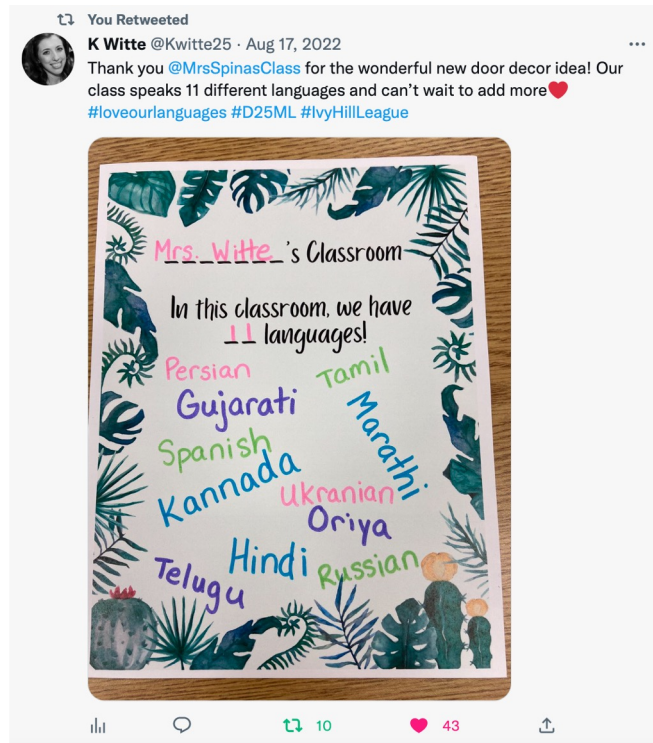 You Retweeted
K Witte @Kwitte25 · Aug 17, 2022
Thank you @MrsSpinasClass for the wonderful new door decor idea! Our
class speaks 11 different languages and can’t wait to add more❤️
#loveourlanguages #D25ML #IvyHillLeague
Mrs. Witte's Classroom
In this classroom, we have
11 languages!
Persian
Tamil
Gujarati
Marathi
Spanish
Kannada
Ukranian
Oriya
Hindi
Russian
Telugu
10
43